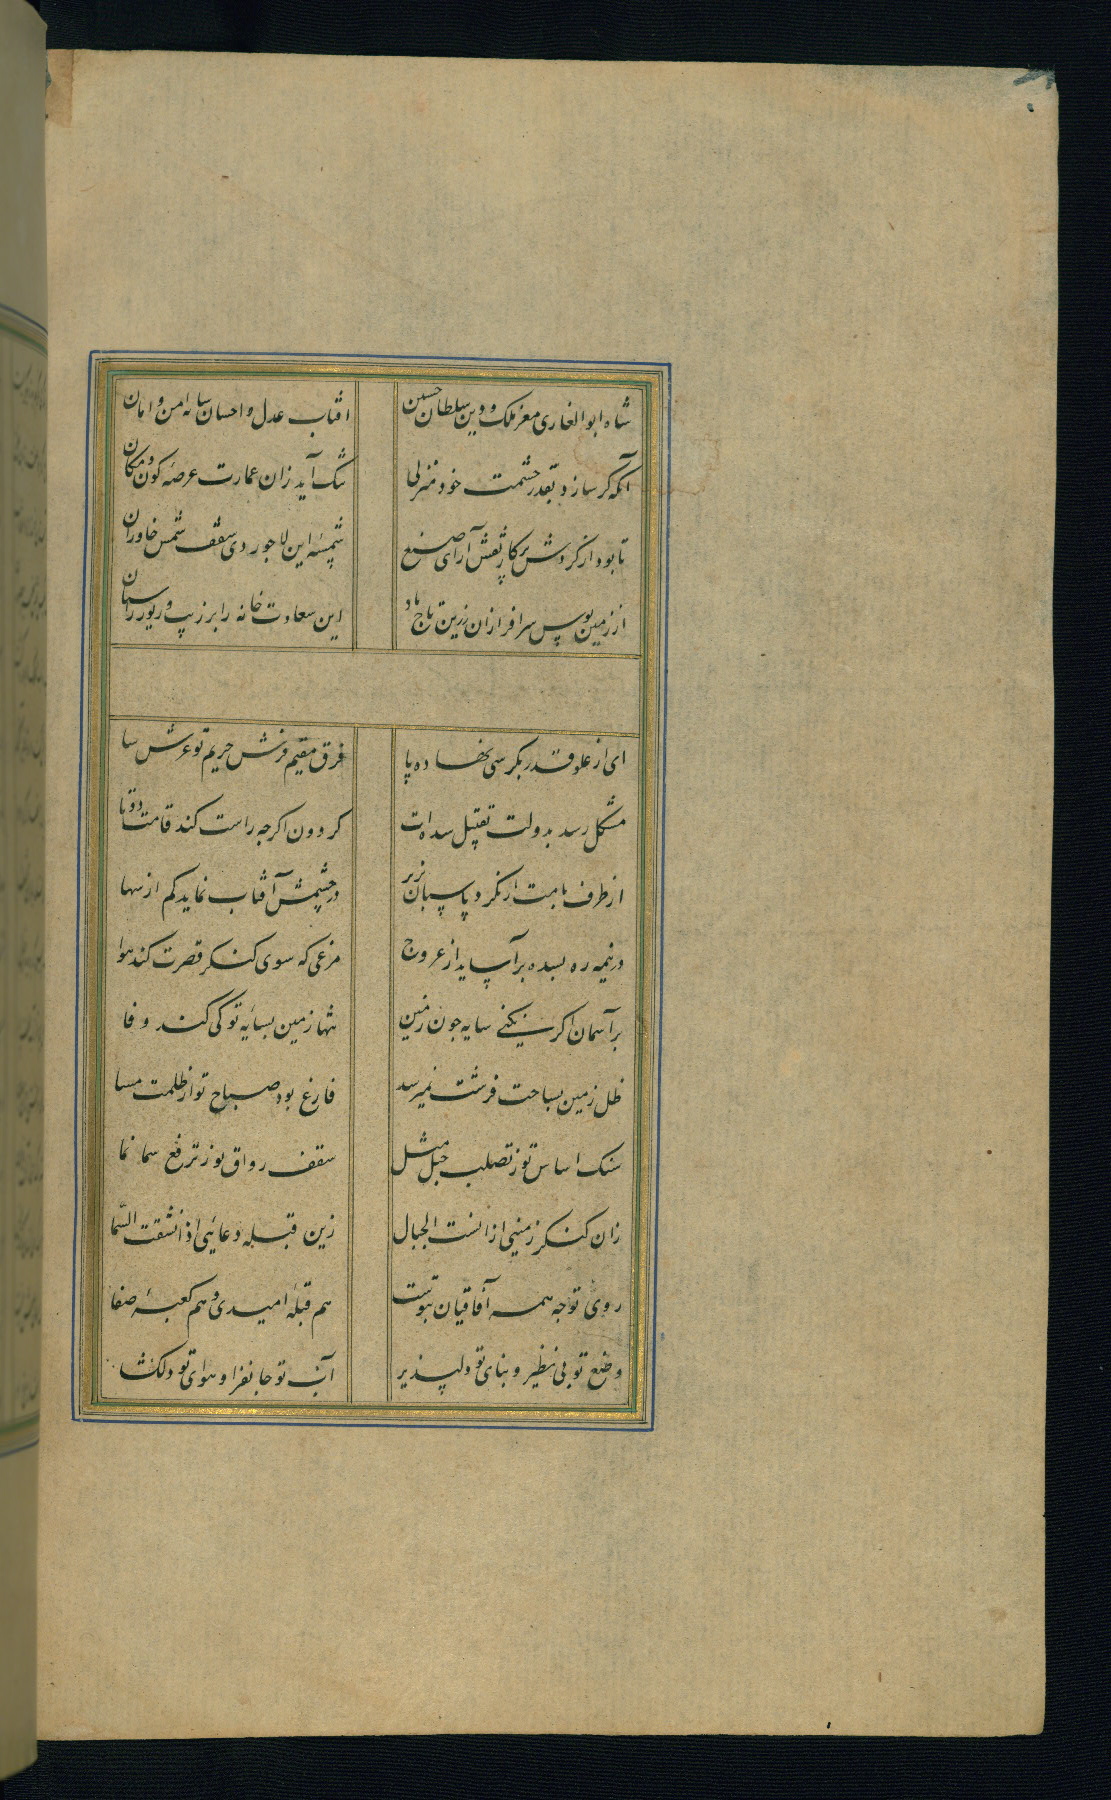 شاه ابو الغازی معز ملک و دین سلطان حسین آفتاب عدل و احسان سایه امن و امان
آنکه گر سازد بقدر حشمت خود منزلی تنک آید زان عمارت عرصه کون و مکان
تا بود از گردش پرکار نقش آرای صنع شمسه این لاجوردی سقف شمس خاوران
از زمین بوس سرافرازان زرین تاج باد این سعادت خانه را بر زیب و زیور
ای از علو قدر بکرسی نهاده پا فرق مقیم فرش حریم تو عرش سا
مشکل رسد بدولت تقبیل سده ات کردون اکرچه راست کند قامت دوتا
از طرف بامت ار نکرد پاسبان بزیر در چشمش آفتاب نماید کم از سها
در نیمه ره بسدره برآساید از عروج مرغی که سوی کنکر قصرت کند هوا
بر آسمان اکر نیکنی سایه چون زمین تنها زمین بسایه تو کی کند وفا
ظل زمین بساحت فرشت نمیرسد فارغ بود صباح تو از ظلمت مسا
سنک اساس تو ز تصلب جبل مثل سقف رواق تو ز ترفع سما نما
زان کنکر زمینی اذا نسفت الجبال زین قبله دعایی اذا نشقت السما
روی توجه همه آفاقیان بتوست هم قبله امیدی و هم کعبه صفا
وضع تو بی نظیر و بنای تو دلپذیر آب تو جانفزا و هوای تو دلکشا